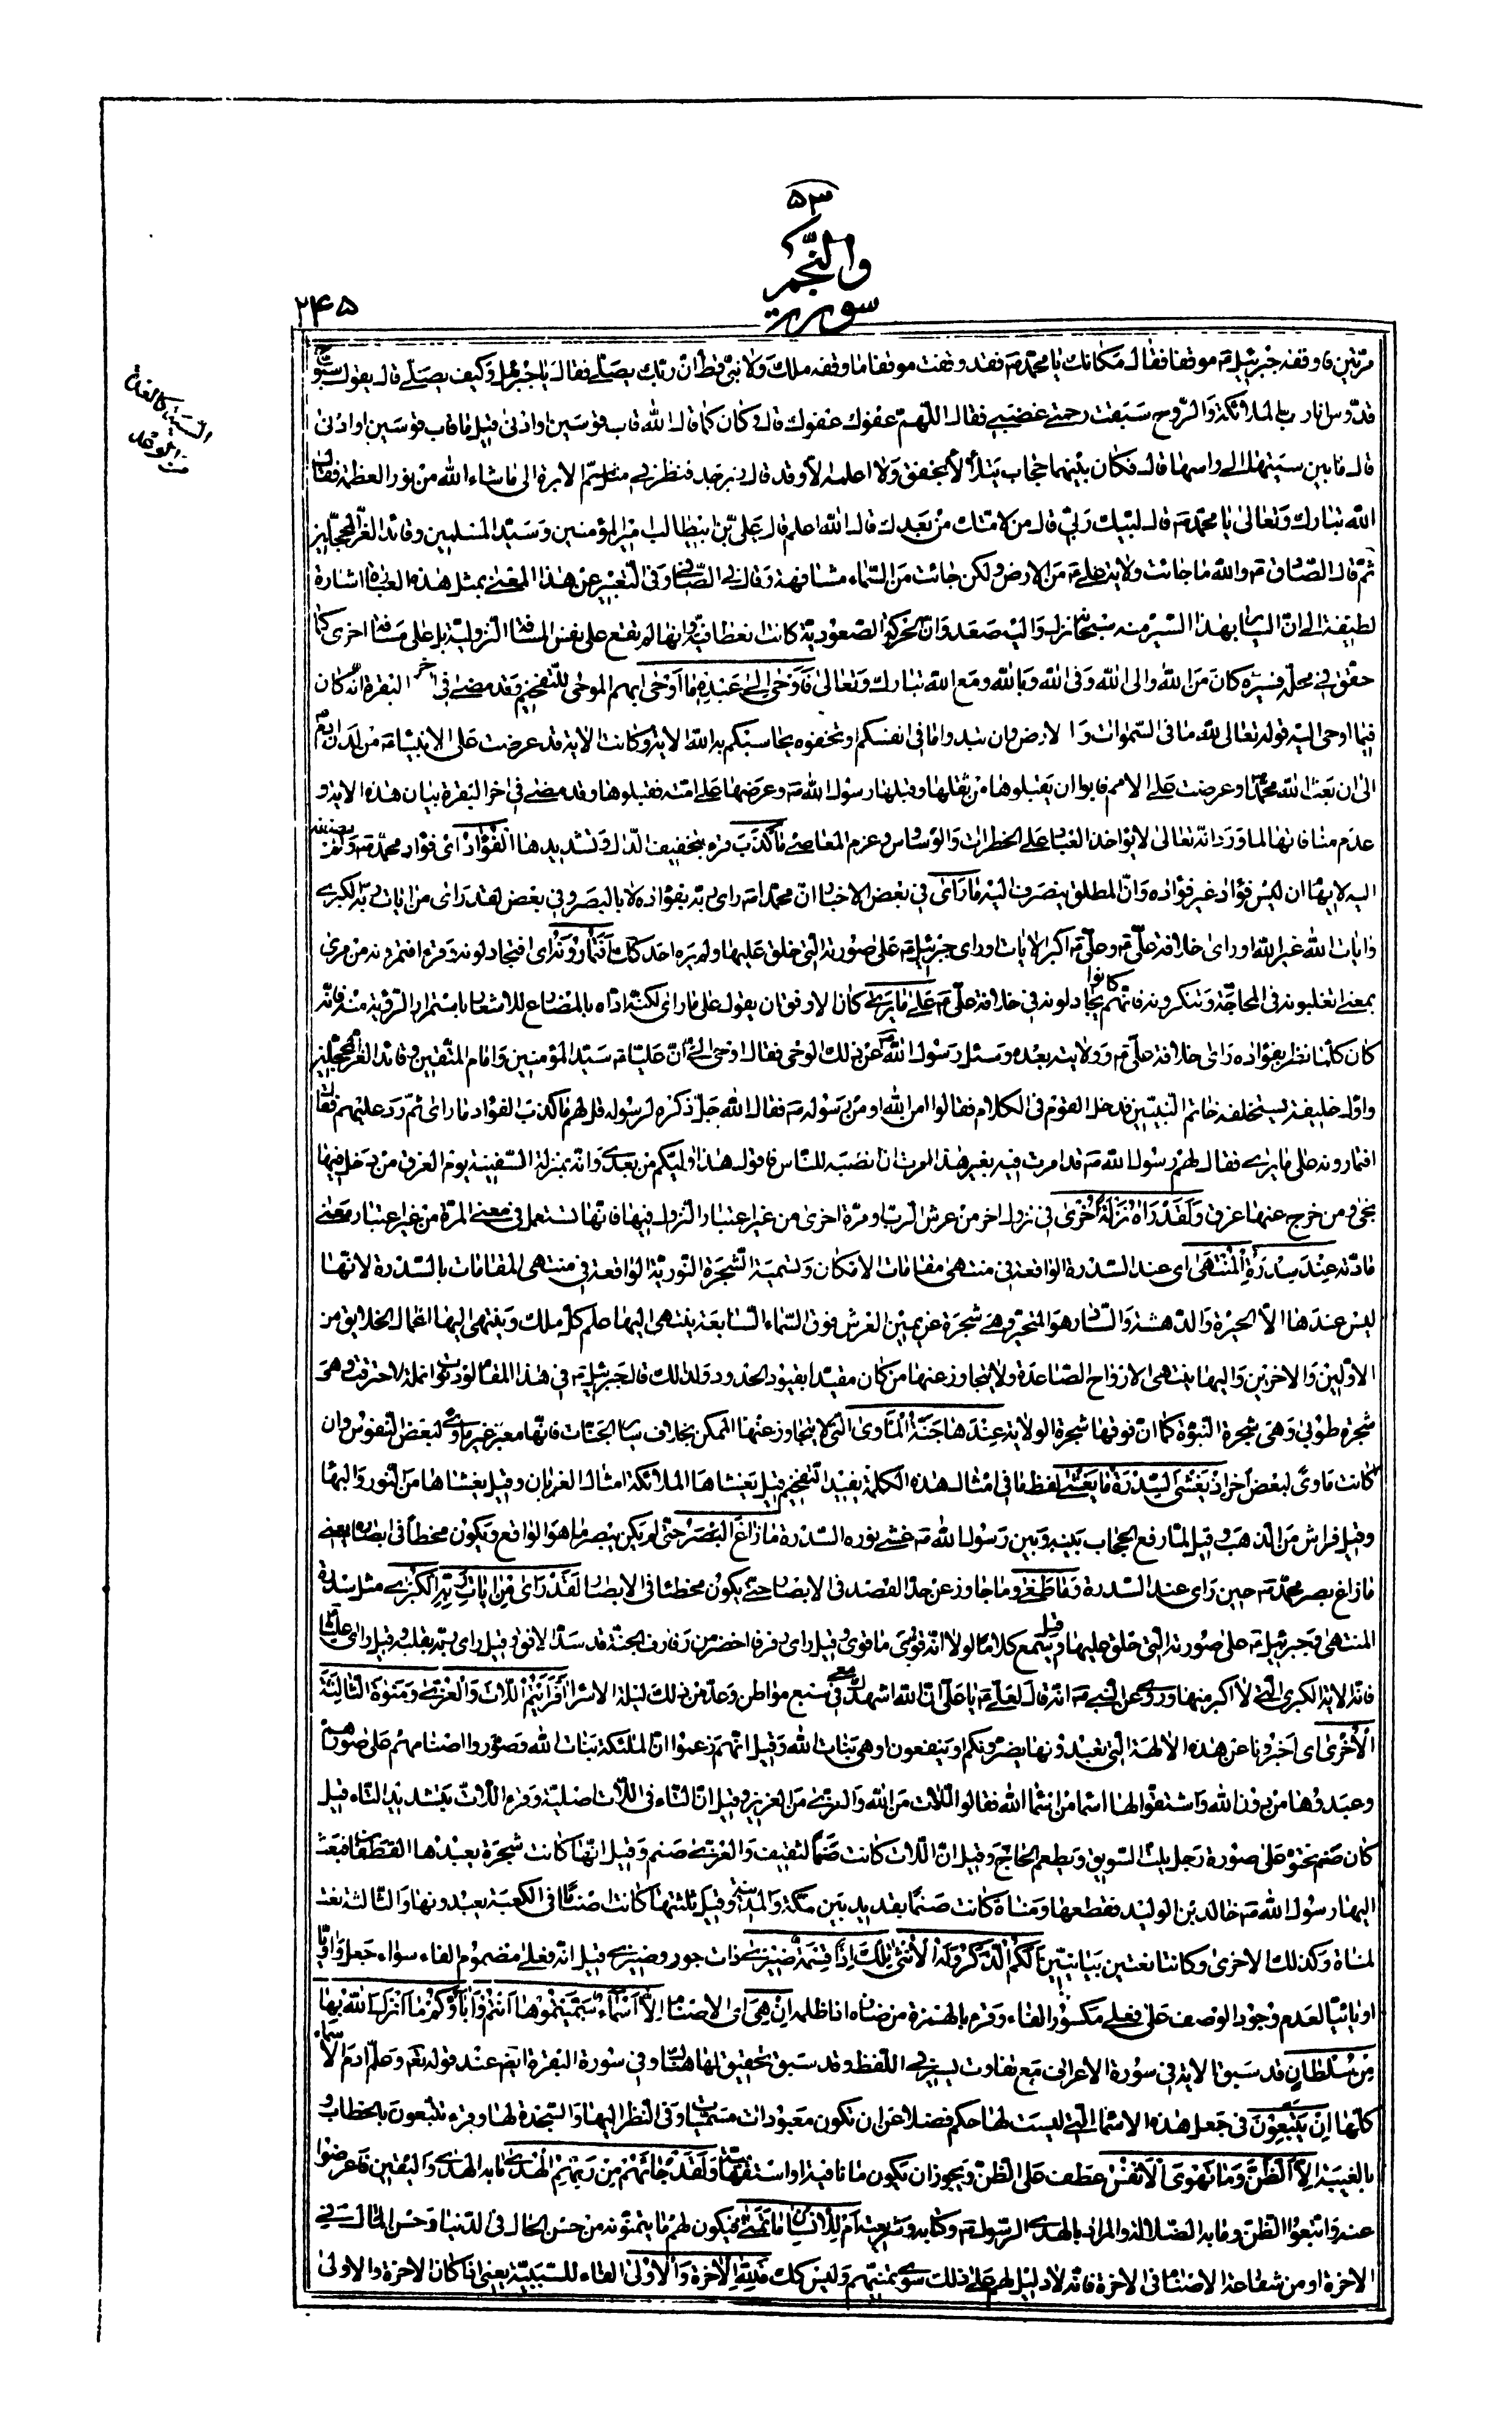 ۵۳
والنّجم
سورة
۲۴۵
مرّتين فاوقفه جبرئيل ع موقفا فقال مكانك يا محمّد ص فقد وقفت موقفا ما وقفه ملك ولا نبىّ قط انّ ربّك يصلّى فقال يا جبرئيل وكيف يصلّى قال يقول سبّوح
قدّوس انا رب الملائكة والرّوح سبقت رحمتى غضبى فقال اللّهمّ عفوك عفوك قال وكان كما قال الله قاب قوسين او ادنى قيل ما قاب قوسين او ادنى
قال ما بين سيتها الى راسها قال فكان بينهما حجاب يتلألأ بخفق ولا اعلمه الّا وقد قال زبرجد فنظر فى مثل سمّ الابرة الى ما شاء الله من نور العظمة فقال
الله تبارك وتعالى يا محمّد ص قال لبّيك ربّى قال من لامّتك من بعدك قال الله اعلم قال علىّ بن ابيطالب امير المؤمنين وسيّد المسلمين وقائد الغرّ المحجّلين
ثمّ قال الصّادق ع والله ما جائت ولاية على ع من الارض ولكن جائت من السّماء مشافهة وقال فى الصّافى وفى التّعبير عن هذا المعنى بمثل هذه العبارة اشارة
لطيفة الى انّ السّير بهذا السّير منه سبحانه نزل واليه صعد وانّ الحركة الصّعوديّة كانت انعطافيّة وانّها لم تقع على نفس المسافة النّزوليّة بل على مسافة اخرى كما
حقّق فى محلّه فسيره كان من الله والى الله وفى الله وبالله ومع الله تبارك وتعالى فَاَوْحى اِلى عَبْدِهِ ما اَوْحى ابهم الموحى للتّفخيم وقد مضى فى اخر البقرة انّه كان
فيما اوحى اليه قوله تعالى لله ما فى السّموات وما فى الارض وان تبدوا ما فى انفسكم او تخفوه يحاسبكم به الله الاية وكانت الاية قد عرضت على الانبياء ع من لدن ادم ع
الى ان بعث الله محمّدا وعرضت على الامم فابوا ان يقبلوها من ثقلها وقبلها رسول الله ص وعرضها على امّته فقبلوها وقد مضى فى اخر البقرة بيان هذه الاية و
عدم منافاتها لما ورد انّه تعالى لا يؤاخذ العباد على الخطرات والوساوس وعزم المعاصى ما كَذَبَ قرء بتخفيف الذّال وتشديدها الْفُؤادُ اى فؤاد محمّد ص ولم
اليه لايهام ان ليس فؤاد غير فؤاده وانّ المطلق ينصرف اليه ما رَاى فى بعض الاخبار انّ محمّدا ص راى ربّه بفؤاده لا بالبصر وفى بعض لقد راى من ايات ربّه الكبرى
وايات الله غير الله او راى خلافة علىّ ع وعلىّ ع اكبر الايات او راى جبرئيل ع على صورته الّتى خلق عليها ولم يره احد كذلك اَفَتُمارُونَهُ اى فتجادلونه وقرء افتمرونه من مرى
بمعنى اتغلبونه فى المحاجّة وتنكرونه فانّهم كانوا يجادلونه فى خلافة علىّ ع عَلى ما يَرى كان الاوفق ان يقول على ما راى لكنّه ادّاه بالمضارع للاشعار باستمرار الرّؤية منه فانّه
كان كلّما نظر بفؤاده راى خلافة علىّ ع وولايته بعده وسئل رسول الله ص عن ذلك الوحى فقال اوحى الىّ انّ عليّا ع سيّد المؤمنين وامام المتّقين وقائد الغرّ المحجّلين
واوّل خليفة يستخلفه خاتم النّبيّين فدخل القوم فى الكلام فقالوا امن الله او من رسوله ص فقال الله جلّ ذكره لرسوله قل لهم ما كذب الفؤاد ما راى ثمّ ردّ عليهم فقال
افتمارونه على ما يرى فقال لهم رسول الله ص قد امرت فيه بغير هذا امرت ان انصبه للنّاس فاقول هذا وليّكم من بعدى وانّه بمنزلة السّفينة يوم الغرق من دخل فيها
نجى ومن خرج عنها غرق وَلَقَدْ رَاهُ نَزْلَةً اُخْرى فى نزول اخر من عرش الرّب او مرّة اخرى من غير اعتبار النّزول فيها فانّها تستعمل فى معنى المرّة من غير اعتبار معنى
مادّته عِنْدَ سِدْرَةِ الْمُنْتَهى اى عند السّدرة الواقعة فى منتهى مقامات الامكان وتسمية الشّجرة النّوريّة الواقعة فى منتهى المقامات بالسّدرة لانّها
ليس عندها الّا الحيرة والدّهشة والسّادر هو المتحيّر وهى شجرة عن يمين العرش فوق السّماء السّابعة ينتهى اليها علم كلّ ملك وينتهى اليها اعمال الخلايق من
الاوّلين والاخرين واليها ينتهى الارواح الصّاعدة ولا يتجاوز عنها من كان مقيّدا بقيود الحدود ولذلك قال جبرئيل ع فى هذا المقام لو دنوت انملة لاحترقت وهى
شجرة طوبى وهى شجرة النّبوّة كما انّ فوقها شجرة الولاية عِنْدَها جَنَّةُ الْمَأْوى الّتى لا يتجاوز عنها الممكن بخلاف سائر الجنّات فانّها معبر غير مأوى لبعض النّفوس وان
كانت مأوىً لبعض اخر اِذْ يَغْشَى السِّدْرَةَ ما يَغْشى لفظ ما فى امثال هذه الكلمة يفيد التّفخيم قيل يغشاها الملائكة امثال الغربان وقيل يغشاها من النّور والبهاء
وقيل فراش من الذّهب وقيل لمّا رفع الحجاب بينه وبين رسول الله ص غشى نوره السّدرة ما زاغَ الْبَصَرُ حتّى لم يكن يبصر ما هو الواقع ويكون مخطأً فى ابصاره يعنى
ما زاغ بصر محمّد ص حين راى عند السّدرة وَما طَغى وما جاوز عن حدّ القصد فى الابصار حتّى يكون مخطئا فى الابصار لَقَدْ رَاى مِنْ اياتِ رَبِّهِ الْكُبْرى مثل سدرة
المنتهى وجبرئيل ع على صورته الّتى خلق عليها وقيل يسمع كلاما لولا انّه قوىّ ما قوى وقيل راى رفرفا اخضر من رفارف الجنّة قد سدّ الافق وقيل راى ربّه بقلبه وقيل راى عليّا ع
فانّه الاية الكبرى الّتى لا اكبر منها وروى عن النّبى ص انّه قال لعلى ع يا على انّ الله اشهدك معى فى سبع مواطن وعدّ من ذلك ليلة الاسراء اَفَرَاَيْتُمُ اللّاتَ وَالْعُزّى وَمَنوةَ الثّالِثَةَ
الْاُخْرى اى اخبرونا عن هذه الالهة الّتى تعبدونها يضرّونكم او ينفعون او هى بنات الله وقيل انّهم زعموا انّ الملئكة بنات الله وصوّروا اصنامهم على صورهم
وعبدوها من دون الله واشتقّوا لها اسماء من اسماء الله فقالوا اللّات من الله والعزّى من العزيز وقيل انّ التّاء فى اللّات اصليّة وقرء اللّات بتشديد التّاء قيل
كان صنم نحتوه على صورة رجل يلتّ السّويق ويطعم الحاجّ وقيل انّ اللّات كانت صنما لثقيف والعزّى صنم وقيل انّها كانت شجرة يعبدها القطفان فبعث
اليها رسول الله ص خالد بن الوليد فقطعها ومناة كانت صنما بقديد بين مكّة والمدينة وقيل ثلثتها كانت اصناما فى الكعبة يعبدونها والثّالثة نعت
لمناة وكذلك الاخرى وكانتا نعتين بيانيّتين اَلَكُمُ الذَّكَرُ وَلَهُ الْاُنْثى تِلْكَ اِذًا قِسْمَةٌ ضيزى ذات جور وضيزى قيل انّه فعلى مضموم الفاء سواء جعل واويّا
او يائيّا لعدم وجود الوصف على فعلى مكسور الفاء وقرء بالهمزة من ضئاه اذا ظلمه اِنْ هِىَ اى الاصنام اِلّا اَسْماءٌ سَمَّيْتُمُوها اَنْتُمْ وَاباؤُكُمْ ما اَنْزَلَ اللهُ بِها
مِنْ سُلْطانٍ قد سبق الاية فى سورة الاعراف مع تفاوت يسير فى اللّفظ وقد سبق تحقيق لها هناك وفى سورة البقرة ايضا عند قوله تعالى وعلّم ادم الاسماء
كلّها اِنْ يَتَّبِعُونَ فى جعل هذه الاسماء الّتى ليست لها حكم فضلا عن ان تكون معبودات مسمّيات وفى النّظر اليها والسّجدة لها وقرء تتّبعون بالخطاب و
بالغيبة اِلَّا الظَّنَّ وَما تَهْوَى الْاَنْفُسُ عطف على الظّنّ ويجوز ان يكون ما نافية او استفهاميّة وَلَقَدْ جائَهُمْ مِنْ رَبِّهِمُ الْهُدى ما به الهدى واليقين فاعرضوا
عنه واتّبعوا الظّنّ وما به الضّلالة والمراد بالهدى الرّسول ص وكتابه وشريعته اَمْ لِلْاِنْسانِ ما تَمَنّى فيكون لهم ما يتمنّونه من حسن الحال فى الدّنيا وحسن المال فى
الاخرة او من شفاعة الاصنام فى الاخرة فانّه لا دليل لهم على ذلك سوى تمنّيهم وليس كك فَلِلّهِ الْاخِرَةُ وَالْاُولى الفاء للسّببيّة يعنى اذا كان الاخرة والاولى